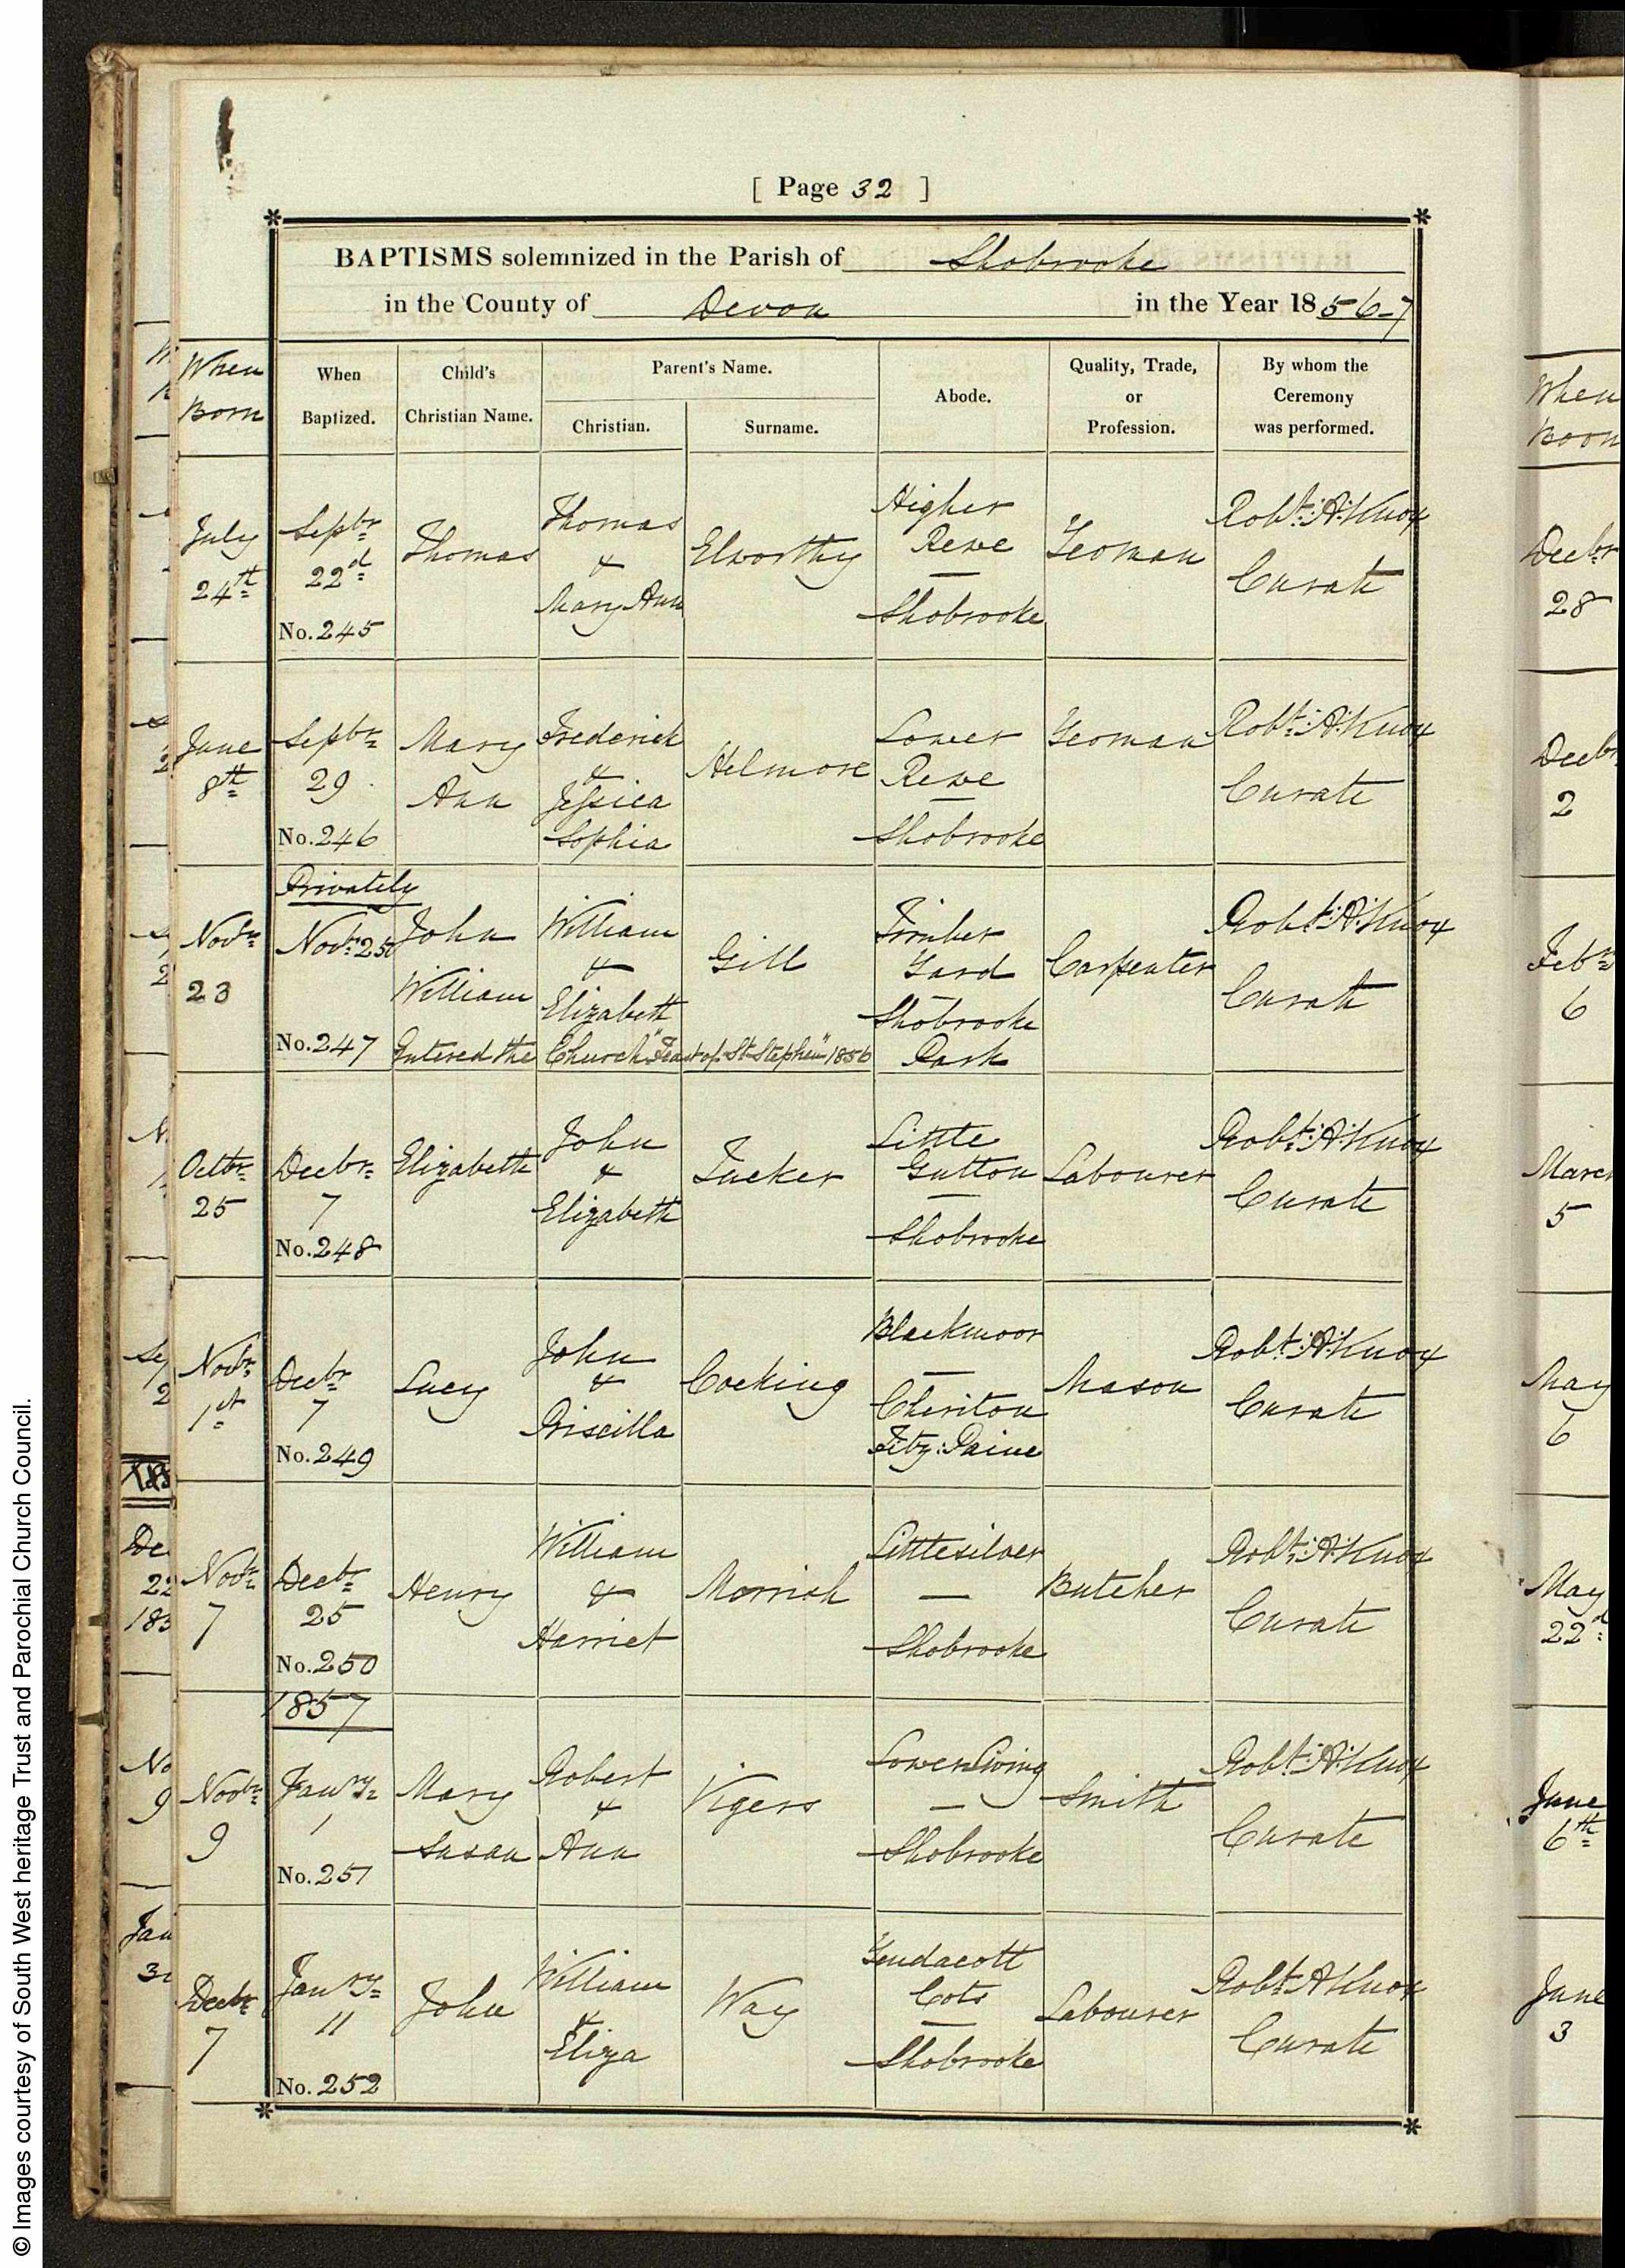 [ Page 32 ]
BAPTISMS solemnized in the Parish of Shobrooke
in the County of Devon in the Year 1856-7
When Born
When Baptized.
Child's Christian Name.
Parent's Name.
Christian.
Surname.
Abode.
Quality, Trade, or Profession.
By whom the Ceremony was performed.
July 24th
Septr 22d
No. 245
Thomas
Thomas & Mary Ann
Elworthy
Higher Rewe — Shobrooke
Yeoman
Robt: A: Knox Curate
June 8th
Septr 29
No. 246
Mary Ann
Frederick & Jessica Sophia
Helmore
Lower Rewe — Shobrooke
Yeoman
Robt: A: Knox Curate
Novr 23
Privately
Novr 25
No. 247
John William
William & Elizabeth
Gill
Timber Yard — Shobrooke Park
Carpenter
Robt: A: Knox Curate
Entered the Church "Feast of St Stephen" 1856
Octbr 25
Decbr 7
No. 248
Elizabeth
John & Elizabeth
Tucker
Little Gutton — Shobrooke
Labourer
Robt: A: Knox Curate
Novbr 1st
Decbr 7
No. 249
Lucy
John & Priscilla
Cocking
Blackmoor — Cheriton Fitz: Paine
Mason
Robt: A: Knox Curate
Novbr 7
Decbr 25
No. 250
Henry
William & Harriet
Morrish
Littlesilver — Shobrooke
Butcher
Robt: A: Knox Curate
1857
Novbr 9
Jany 1
No. 251
Mary Susan
Robert & Ann
Vigers
Lower Living — Shobrooke
Smith
Robt: A: Knox Curate
Decbr 7
Jany 11
No. 252
John
William & Eliza
Way
Yendacott Cots — Shobrooke
Labourer
Robt A Knox Curate
When Born
Decbr 28
Decbr 2
Febr 6
March 5
May 6
May 22d
June 6th
June 3
© Images courtesy of South West heritage Trust and Parochial Church Council.